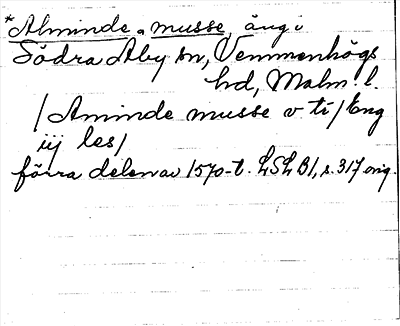 *Alminde musse, äng i
Södra Åby sn, Vemmenhögs
hd, Malm. l.
/Aminde musse v ti/Eng
iij les/
förra delen av 1570-t. LSLB1, s. 317 orig.